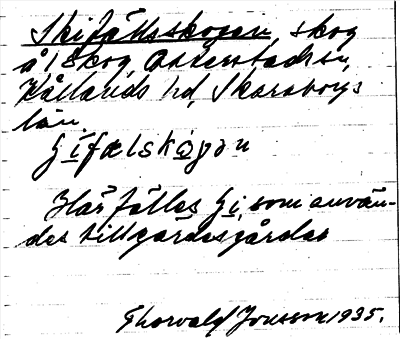 Skifällsskogen, skog
å 1 Skog, Otterstads sn,
Kållands hd, Skaraborgs
län.
ʃífælskọgən
Här fälles ʃi, som använ-
des till gärdesgårdar
Thorvald Jonsson 1935.